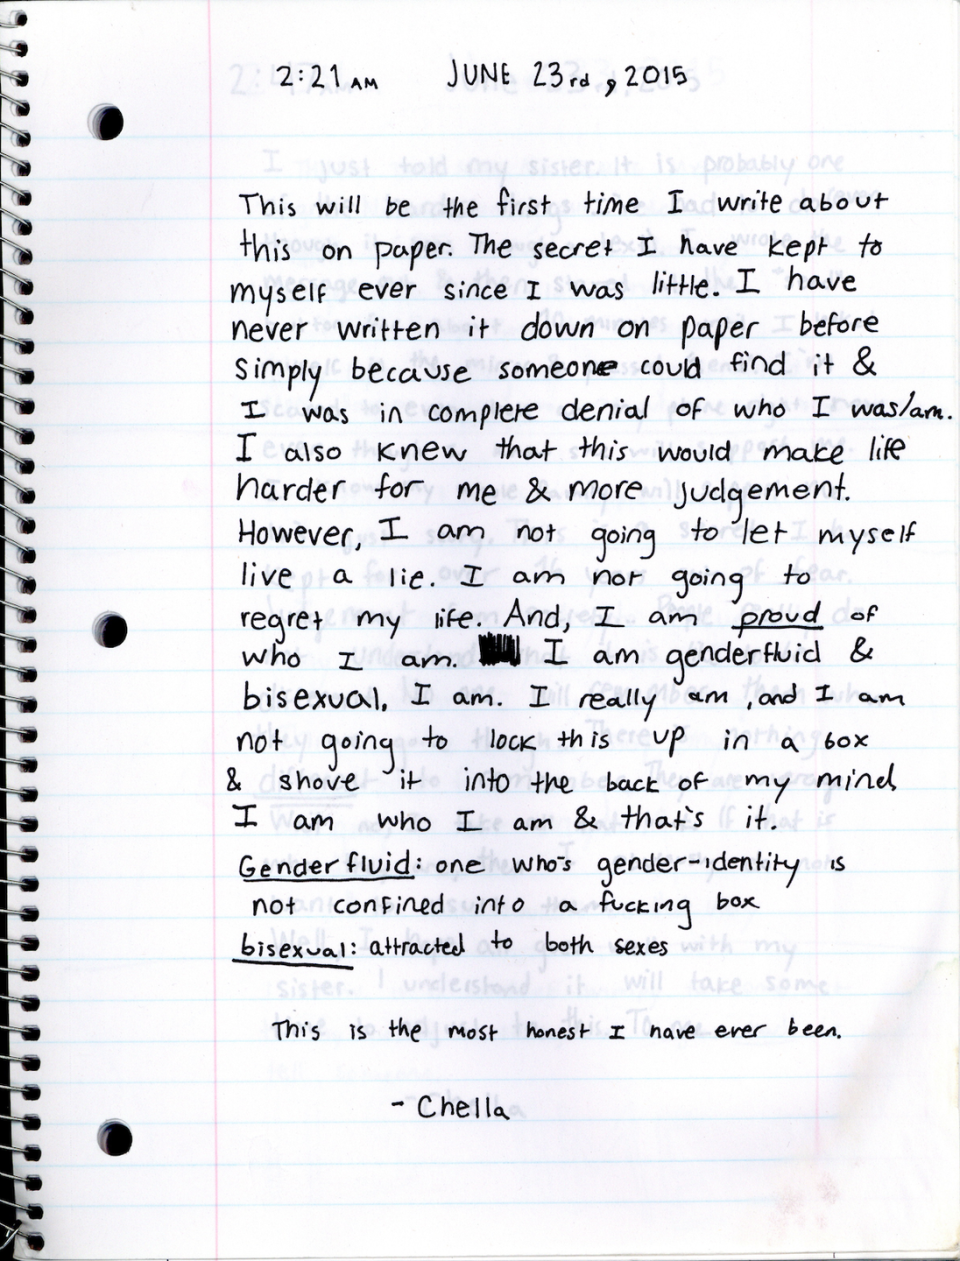 2:21 AM JUNE 23rd, 2015
This will be the first time I write about
this on paper. The secret I have kept to
myself ever since I was little. I have
never written it down on paper before
simply because someone could find it &
I was in complete denial of who I was/am.
I also knew that this would make life
harder for me & more judgement.
However, I am not going to let myself
live a lie. I am not going to
regret my life. And, I am proud of
who I am. I am genderfluid &
bisexual, I am. I really am, and I am
not going to lock this up in a box
& shove it into the back of my mind
I am who I am & that's it.
Gender fluid: one who's gender-identity is
not confined into a fucking box
bisexual: attracted to both sexes
This is the most honest I have ever been.
- Chella